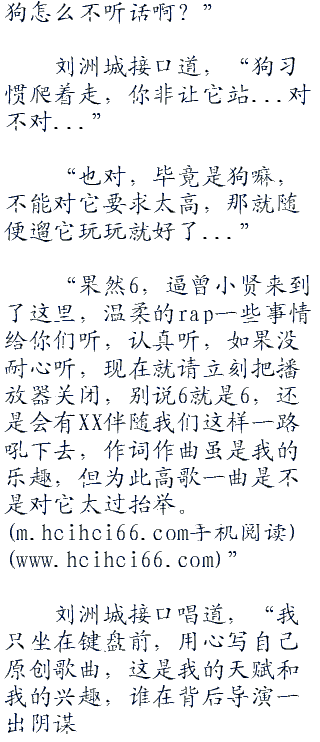 狗怎么不听话啊？”
刘洲城接口道，“狗习
惯爬着走，你非让它站...对
不对...”
“也对，毕竟是狗嘛，
不能对它要求太高，那就随
便遛它玩玩就好了...”
“果然6，逼曾小贤来到
了这里，温柔的rap一些事情
给你们听，认真听，如果没
耐心听，现在就请立刻把播
放器关闭，别说6就是6，还
是会有XX伴随我们这样一路
吼下去，作词作曲虽是我的
乐趣，但为此高歌一曲是不
是对它太过抬举。
(m.hcihci66.com手机阅读)
(www.hcihci66.com)”
刘洲城接口唱道，“我
只坐在键盘前，用心写自己
原创歌曲，这是我的天赋和
我的兴趣，谁在背后导演一
出阴谋